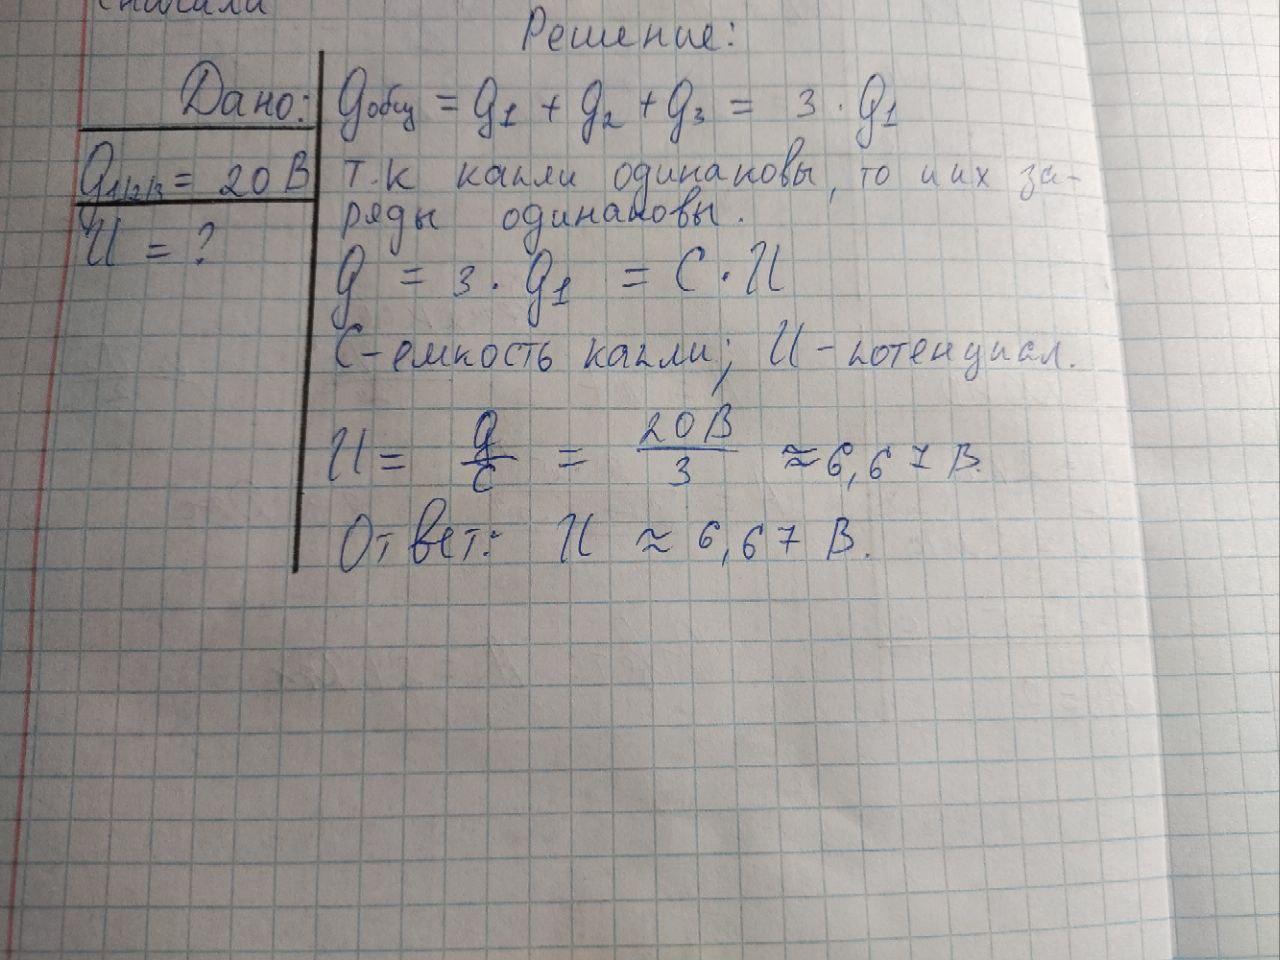 Решение:
Дано:
q1,2,3 = 20 В
U = ?
qобщ = q1 + q2 + q3 = 3 · q1
т.к капли одинаковы, то и их за-
ряды одинаковы.
q = 3 · q1 = C · U
C - емкость капли; U - потенциал.
U = q/C = 20В/3 ≈ 6,67 В.
Ответ: U ≈ 6,67 В.